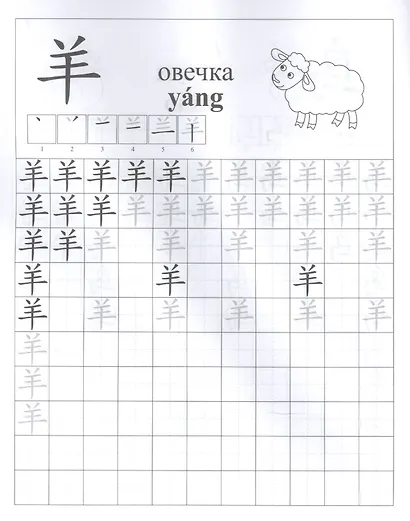 羊 овечка
yáng
1 2 3 4 5 6
羊 羊 羊 羊 羊 羊 羊 羊 羊 羊 羊
羊 羊 羊 羊 羊 羊 羊 羊 羊 羊 羊
羊 羊 羊 羊 羊 羊 羊
羊 羊 羊
羊 羊 羊 羊 羊 羊
羊
羊
羊